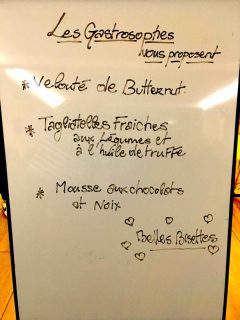 Les Gastrosophes
vous proposent
* Velouté de Butternut
* Tagliatelles Fraiches
aux Légumes et
à l'huile de truffe
* Mousse aux chocolats
et Noix
Belles Bisettes